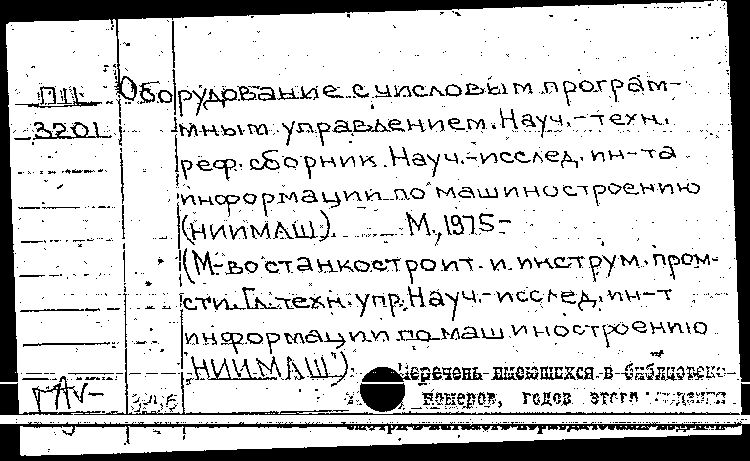 ПII Оборудование с числовым програм-
3201 мным управлением. Науч.-техн.
реф. сборник. Науч.-исслед. ин-та
информации по машиностроению
(НИИМАШ). М., 1975-
(М-во станкостроит. и инструм. пром-
сти. Гл. техн. упр. Науч.-исслед. ин-т
информации по машиностроению
"НИИМАШ").
Перечень имеющихся в библиотеке
номеров, годов этого издания